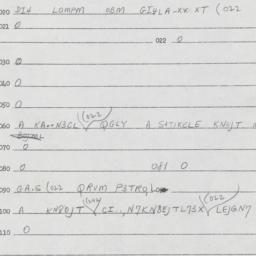 020 DIH LOMPM OBM GIHLA-XX XT (022
021 0
022 0
030 0
040 0
050 0
060 A KA..N3CL (022) QGLY A S+TIKELE KN0JT
070 0
080 0 081 0
090 GA.S (022 QRVM P3TRQL
100 A KN80JT CI.., N7KN8EJTL73X (022 LEJGN7
110 0